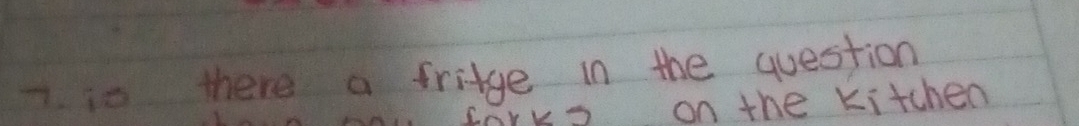 7. is there a fritge in the question
forks on the kitchen